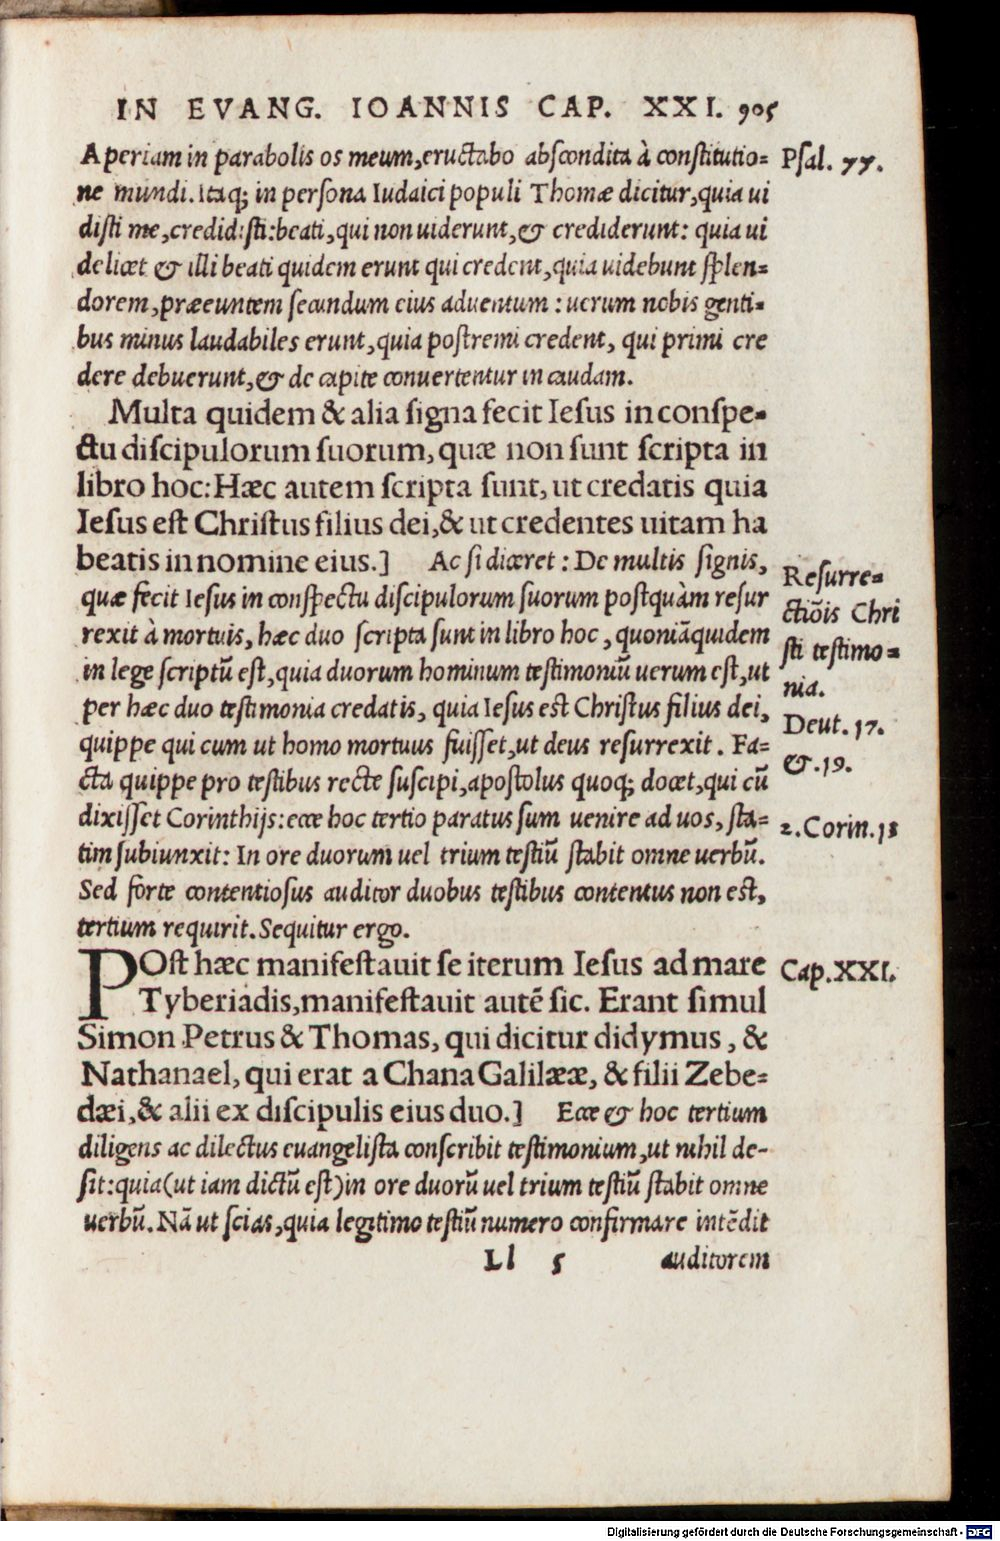 IN EVANG. IOANNIS CAP. XXI. 905
Aperiam in parabolis os meum, eructabo abscondita à constitutio=
ne mundi. Itaq; in persona Iudaici populi Thomæ dicitur, quia ui
disti me, credidisti: beati, qui non uiderunt, & crediderunt: quia ui
delicet & illi beati quidem erunt qui credent, quia uidebunt splen=
dorem, præeuntem secundum eius aduentum: uerum nobis genti=
bus minus laudabiles erunt, quia postremi credent, qui primi cre
dere debuerunt, & de capite conuertentur in caudam.
Psal. 77.
Multa quidem & alia signa fecit Iesus in conspe=
ctu discipulorum suorum, quæ non sunt scripta in
libro hoc: Hæc autem scripta sunt, ut credatis quia
Iesus est Christus filius dei, & ut credentes uitam ha
beatis in nomine eius.] Ac si diceret: De multis signis,
quæ fecit Iesus in conspectu discipulorum suorum postquàm resur
rexit à mortuis, hæc duo scripta sunt in libro hoc, quoniãquidem
in lege scriptũ est, quia duorum hominum testimoniũ uerum est, ut
per hæc duo testimonia credatis, quia Iesus est Christus filius dei,
quippe qui cum ut homo mortuus fuisset, ut deus resurrexit. Fa=
cta quippe pro testibus recte suscipi, apostolus quoq; docet, qui cũ
dixisset Corinthijs: ecce hoc tertio paratus sum uenire ad uos, sta=
tim subiunxit: In ore duorum uel trium testiũ stabit omne uerbũ.
Sed forte contentiosus auditor duobus testibus contentus non est,
tertium requirit. Sequitur ergo.
Resurre=
ctiõis Chri
sti testimo=
nia.
Deut. 17.
&. 19.
2. Corin. 13
POst hæc manifestavit se iterum Iesus ad mare
Tyberiadis, manifestavit autẽ sic. Erant simul
Simon Petrus & Thomas, qui dicitur didymus, &
Nathanael, qui erat a Chana Galilææ, & filii Zebe=
dæi, & alii ex discipulis eius duo.] Ecce & hoc tertium
diligens ac dilectus euangelista conscribit testimonium, ut nihil de-
sit: quia (ut iam dictũ est) in ore duorũ uel trium testiũ stabit omne
uerbũ. Nã ut scias, quia legitimo testiũ numero confirmare intẽdit
Cap. XXI.
Ll 5 auditorem
Digitalisierung gefördert durch die Deutsche Forschungsgemeinschaft - DFG